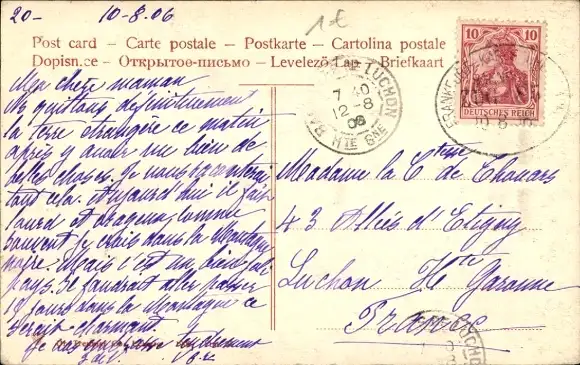 20- 10-8.06
1€
Post card – Carte postale – Postkarte – Cartolina postale
Dopisnice – Открытое-письмо – Levelező-Lap – Briefkaart
Ma chère maman
Ns quittons définitivement
la terre étrangère ce matin
après y avoir vu bien de
belles choses. Je vous raconterai
tout cela. Aujourd'hui il fait
lourd et orageux, comme
souvent je crois dans la Montagne
noire. Mais c'est un bien joli
pays. Il faudrait aller passer
15 jours dans la Montagne ce
serait charmant.
Je vous embrasse tendrement
Madame la Ctesse de
43 Allées d'Etigny
Luchon Hte Garonne
France
10
10
DEUTSCHES REICH
LUCHON
7 30
12 -8
06
HTE GNE
10 8 06
LUCHON